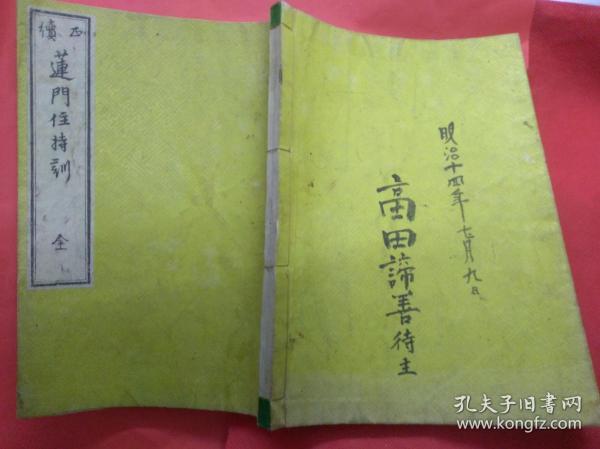 正續
蓮門住持訓 全
明治十四年七月九日
高田諦善待主
孔夫子旧书网
www.kongfz.com